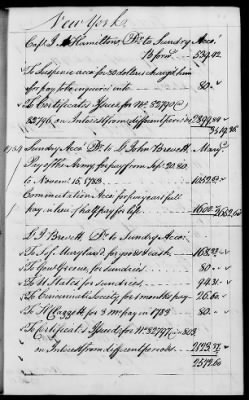 New York
Capt. J. A. Hamilton, Dr. to Sundry Accs.
Bford 539.42
To Suspence acct. for 80 dollars charg'd him
for pay to be inquired into 80
To Certificates Issued for No. 82790 @
82796 on Interest from different periods 2899.84
3519.26
1784 Sundry Accs. Drs. to Lt. John Brewett, Maryd.
Pay of the Army for pay from Aug. 80
to Novem. 15, 1783 1052.60
Commutation Acct. for five years full
pay in lieu of half pay for life 1600 2652.60
Lt. J. Brewett Dr. to Sundry Accs.
To State Maryland for goods & cash 168.32
To Genl. Greene for sundries 80
To U States for sundries 94.31
To Cincinnati Society for 1 months pay 26.60
To H. Claggett for 3 Ms. pay in 1783 80
To Certificates Issued for No. 82797 @ 803
on Interest from different periods 2123.37
2572.60